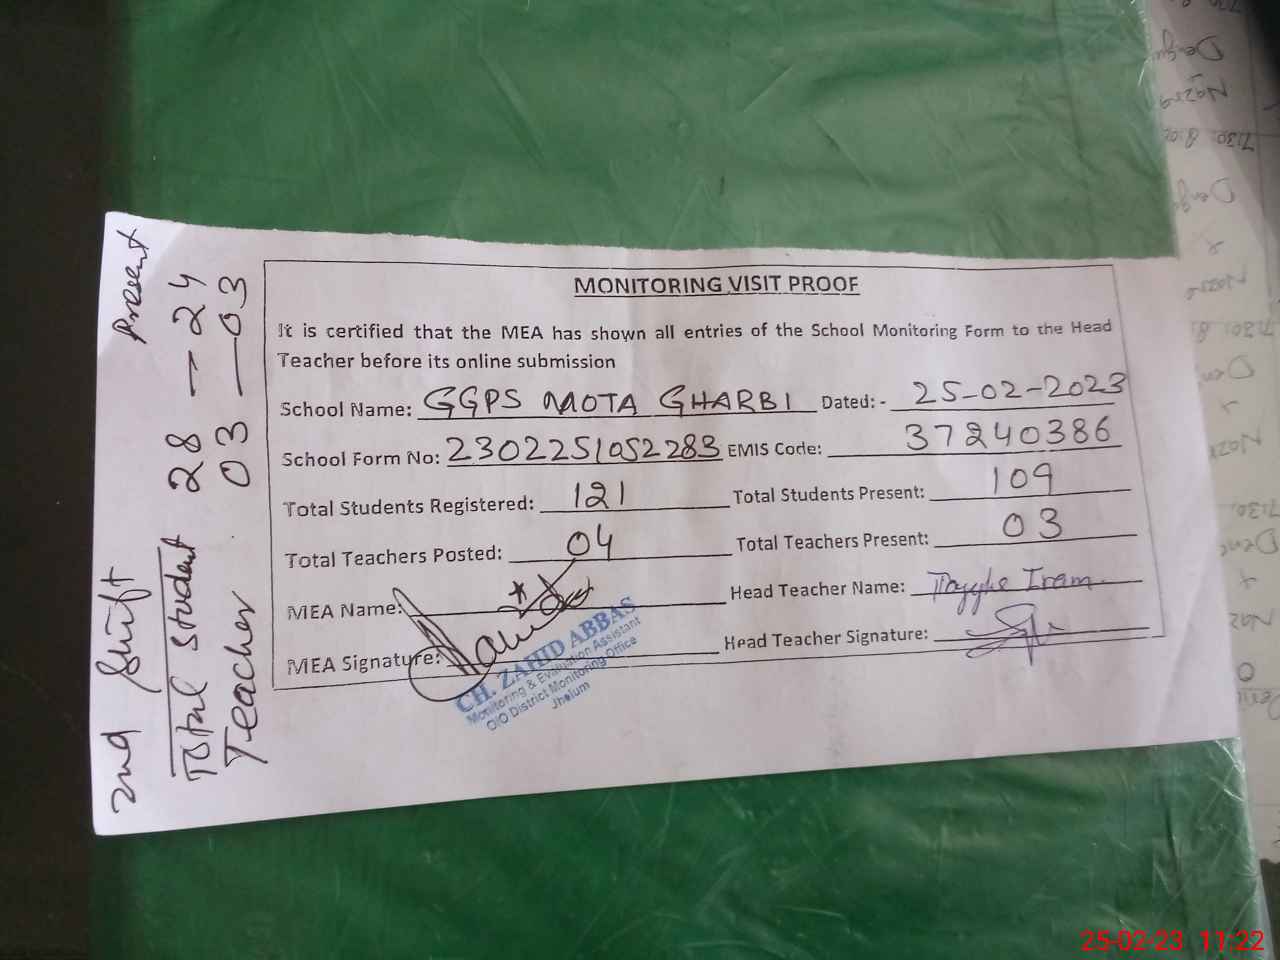 MONITORING VISIT PROOF
It is certified that the MEA has shown all entries of the School Monitoring Form to the Head
Teacher before its online submission
School Name: GGPS MOTA GHARBI Dated:- 25-02-2023
School Form No: 2302251052283 EMIS Code: 37240386
Total Students Registered: 121 Total Students Present: 109
Total Teachers Posted: 04 Total Teachers Present: 03
MEA Name: Head Teacher Name: Iram
MEA Signature: Head Teacher Signature:
CH. ZAHID ABBAS
Monitoring & Evaluation Assistant
O/O District Monitoring Office
Jhelum
2nd Shift Present
Total Student 28 — 24
Teacher 03 — 03
25-02-23 11:22